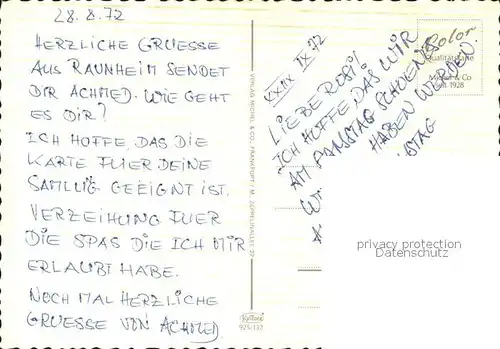 28.8.72
HERZLICHE GRUESSE
AUS RAUNHEIM SENDET
DIR ACHMED. WIE GEHT
ES DIR?
ICH HOFFE, DAS DIE
KARTE FUER DEINE
SAMLUG GEEIGNT IST.
VERZEIHUNG FUER
DIE SPAS DIE ICH MIR
ERLAUBT HABE.
NOCH MAL HERZLICHE
GRUESSE VON ACHMED
VERLAG MICHEL & CO., FRANKFURT / M.
Kolor
Qualitätskarte
Michel & Co
seit 1928
IX 72
LIEBE ROSI!
ICH HOFFE, DAS WIR
AM SCHOENES
HABEN WERDEN.
privacy protection
Datenschutz
925/132